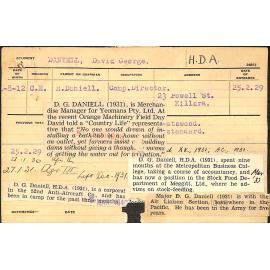 DANIELL, David George.
H.D.A.
-8-12 C.E. H.Daniell, Comp.Director, 23 Powell St. 25.2.29
Killara.
D. G. DANIELL (1931), is Merchandise
Manager for Yeomans Pty. Ltd. At
the recent Orange Machinery Field Day
David told a "Country Life" representative
that "No one would dream of
installing a bathtub in a home without
an outlet, yet farmers insist
dams without giving a thought
of getting the water out for irrigation."
25.2.29
27.1.31
Left Dec. 1931
D. G. DANIELL, H.D.A. (1931), is a corporal
in the 52nd Anti-Aircraft Co., and has
been in camp for the past three
D. G. Daniell, H.D.A. (1931), spent nine
months at the Metropolitan Business College,
taking a course of accountancy, and
has now a position in the Stock Food Department
of Meggitt, Ltd., where he
advises on stock-feeding.
Major D. G. DANIELL (1931), is with the
Air Liaison Section, somewhere in the
Pacific. He has been in the Army for five
years.